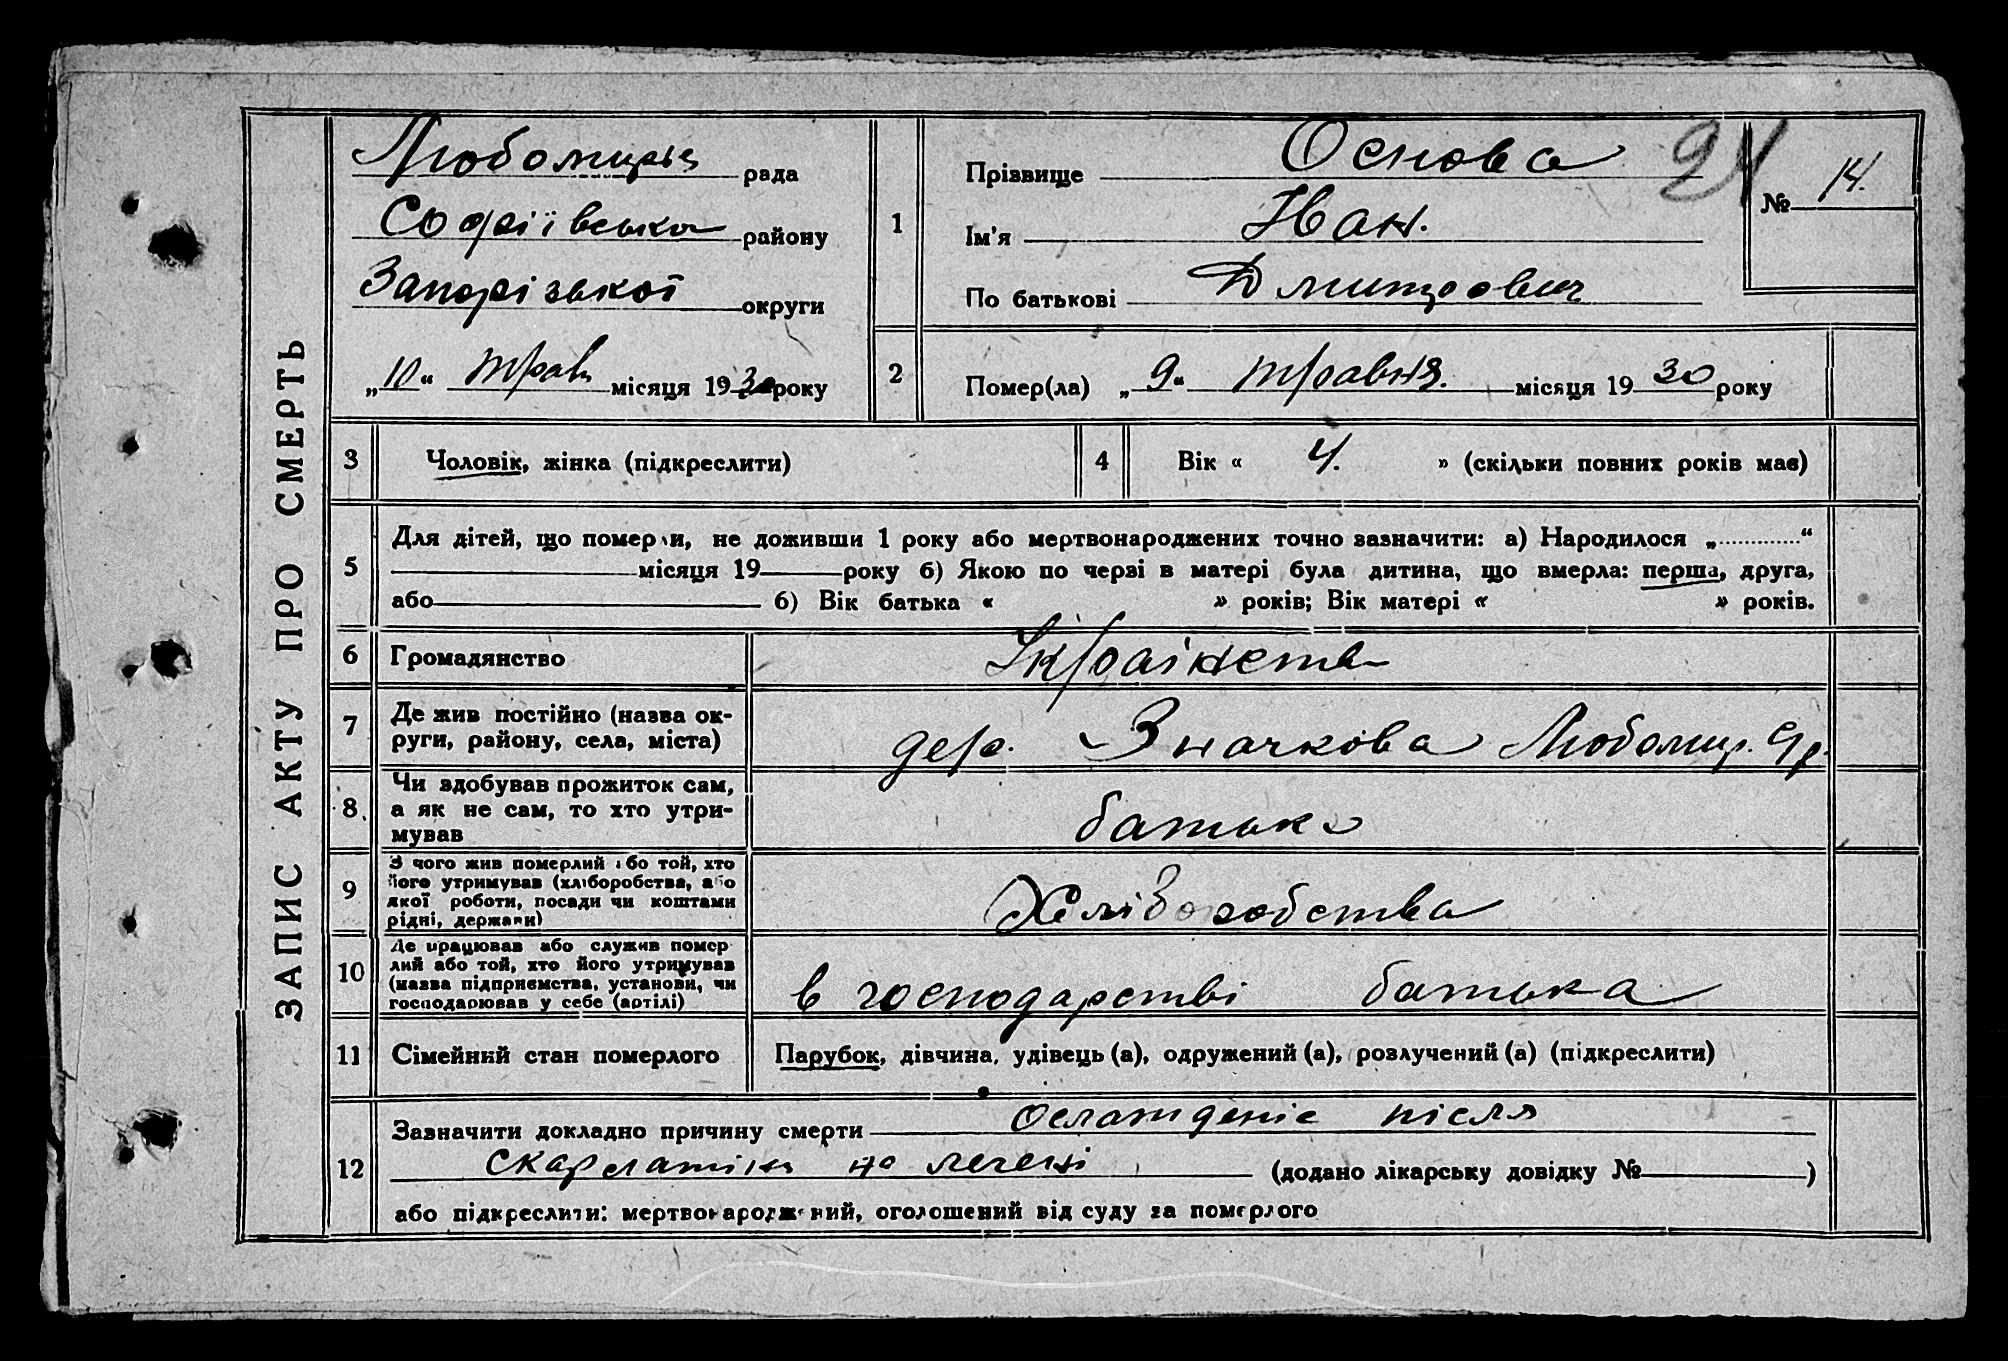 ЗАПИС АКТУ ПРО СМЕРТЬ
Любомирів рада
Софіївська району
Запорізької округи
„10“ трав місяця 1930 року
1
Прізвище Основа
Ім'я Иван.
По батькові Дмитрович
24
№ 14.
2
Помер(ла) „9“ травня. місяця 1930 року
3 Чоловік, жінка (підкреслити)
4 Вік « 4. » (скільки повних років має)
5
Для дітей, що померли, не доживши 1 року або мертвонароджених точно зазначити: а) Народилося „..........“
місяця 19 року б) Якою по черзі в матері була дитина, що вмерла: перша, друга,
або б) Вік батька « » років; Вік матері « » років.
6 Громадянство Українств
7 Де жив постійно (назва ок-
руги, району, села, міста)
дер. Значкова Любомир.
8 Чи здобував прожиток сам,
а як не сам, то хто утри-
мував
батько
9 З чого жив померлий або той, хто
його утримував (хліборобства, або
якої роботи, посади чи коштами
рідні, держави)
Хліборобства
10 Де працював або служив помер
лий або той, хто його утримував
(назва підприємства, установи, чи
господарював у себе (артілі)
в господарстві батька
11 Сімейний стан померлого Парубок, дівчина, удівець (а), одружений (а), розлучений (а) (підкреслити)
12
Зазначити докладно причину смерти після
скарлатіни на легені (додано лікарську довідку № )
або підкреслити: мертвонароджений, оголошений від суду за померлого